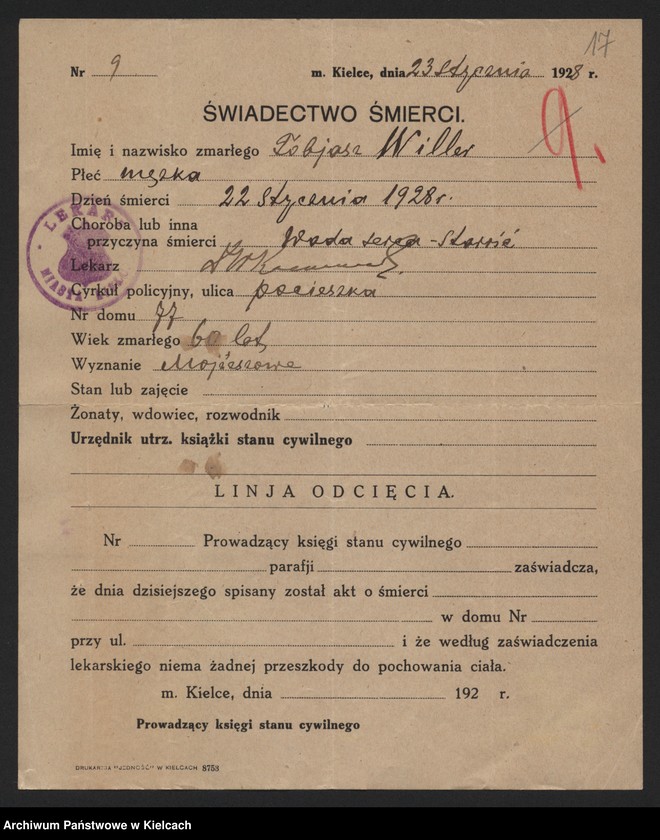 17
Nr 9 m. Kielce, dnia 23 Stycznia 1928 r.
ŚWIADECTWO ŚMIERCI.
9.
Imię i nazwisko zmarłego Tobjasz Willer
Płeć męska
Dzień śmierci 22 Stycznia 1928 r.
Choroba lub inna
przyczyna śmierci Wada serca - Starość
LEKARZ
MIASTA
Lekarz
Cyrkuł policyjny, ulica pocieszka
Nr domu 77
Wiek zmarłego 60 lat
Wyznanie Mojżeszowe
Stan lub zajęcie
Żonaty, wdowiec, rozwodnik
Urzędnik utrz. książki stanu cywilnego
LINJA ODCIĘCIA.
Nr Prowadzący księgi stanu cywilnego
parafji zaświadcza,
że dnia dzisiejszego spisany został akt o śmierci
w domu Nr
przy ul. i że według zaświadczenia
lekarskiego niema żadnej przeszkody do pochowania ciała.
m. Kielce, dnia 192 r.
Prowadzący księgi stanu cywilnego
DRUKARNIA "JEDNOŚĆ" W KIELCACH 8753
Archiwum Państwowe w Kielcach